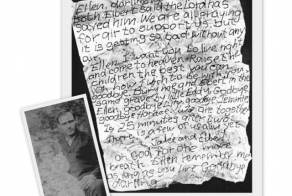 Ellen, darling, goodbye
Both Elbert said the Lord has
saved him. We are all praying
for air to support us, but
it is getting so bad without any
air.
Ellen, I want you to live right
and come to heaven. Raise the
children the best you can.
Oh how I wish to be with you,
goodbye. Bury me and Elbert in the
same grave by little Eddy. Goodbye
Ellen, goodbye Lily, goodbye Jemmie,
goodbye Horace. We are together.
Is 25 minutes after two.
There is a few of us alive
Jake and Elbert
Oh God for one more
breath. Ellen remember me
as long as you live Goodbye
darling